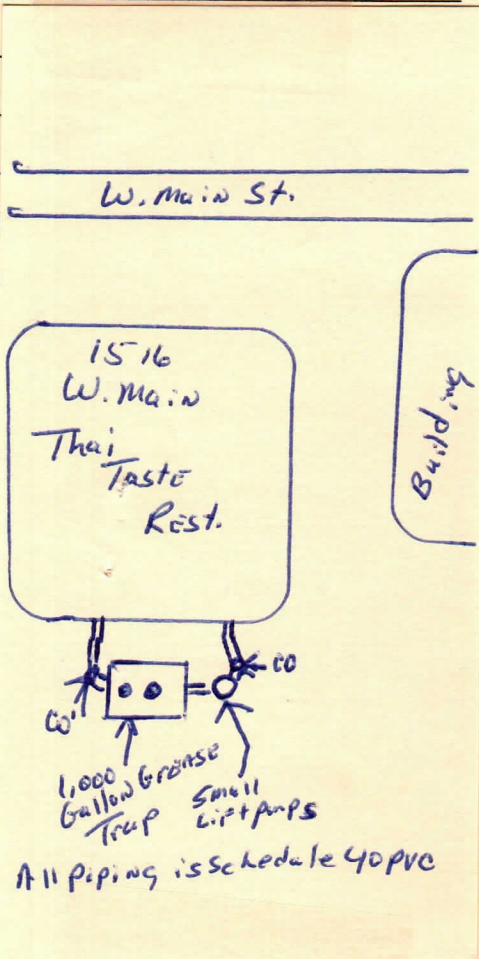 W. Main St.
1516
W. Main
Thai
Taste
Rest.
Building
CO
CO
1,000
Gallon Grease
Trap
Small
Lift pumps
All piping is Schedule 40 PVC